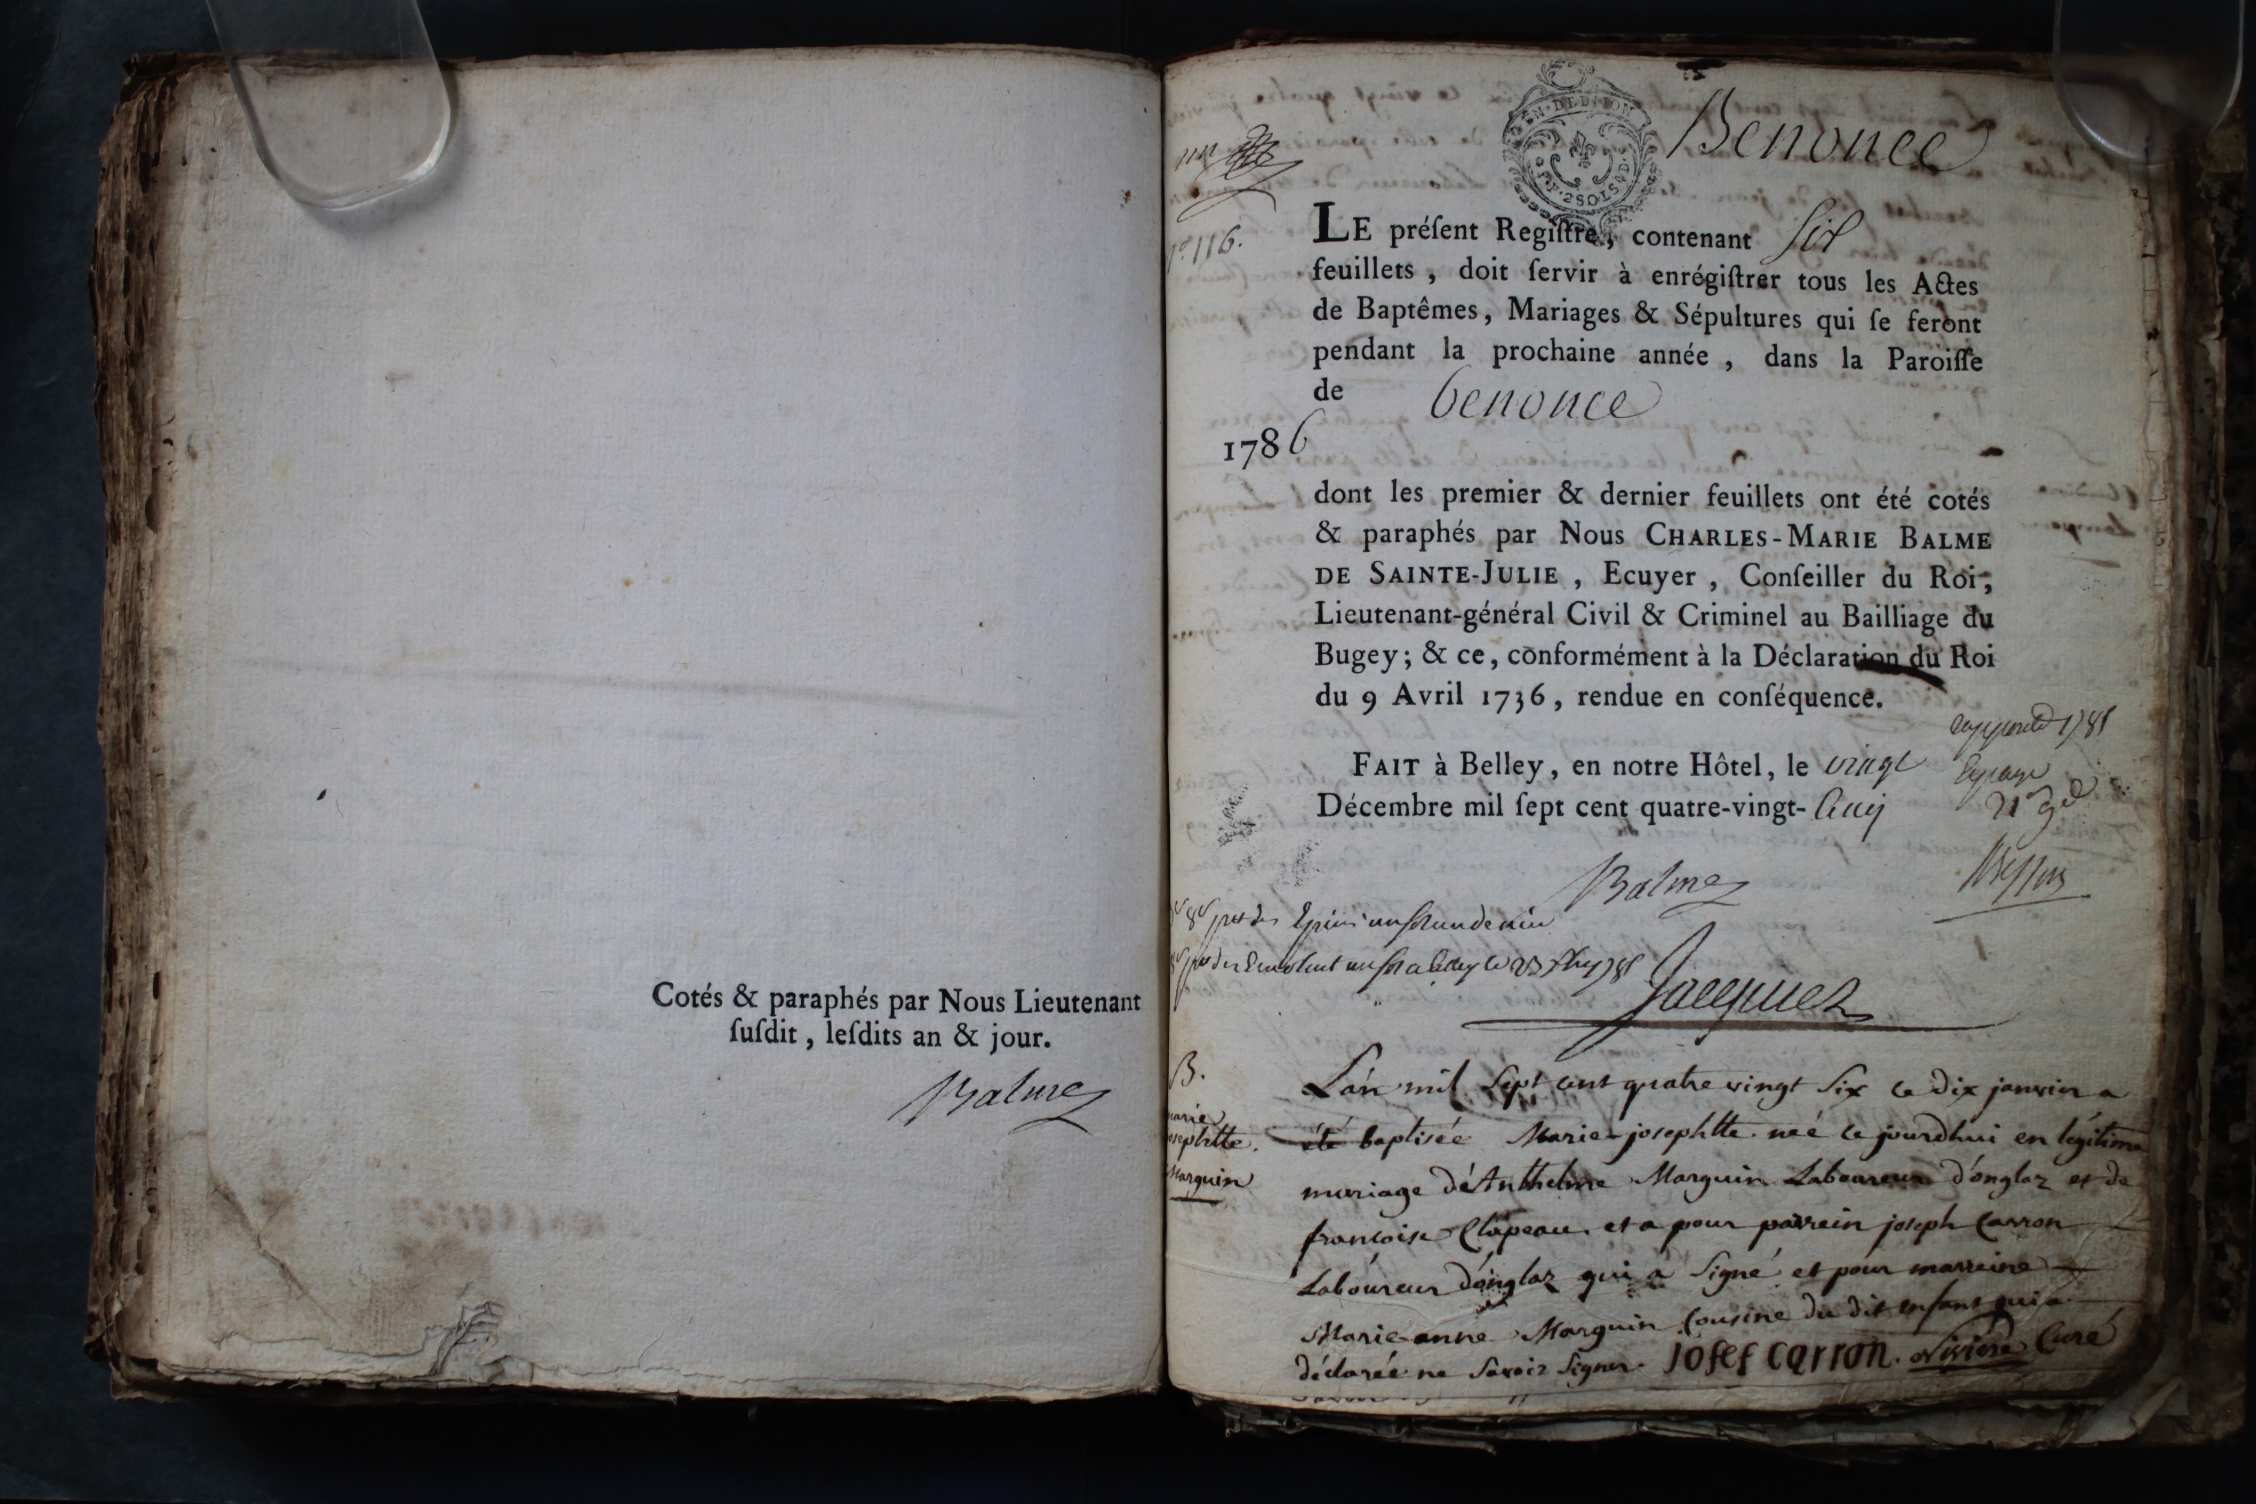 Cotés & paraphés par Nous Lieutenant
ſuſdit, leſdits an & jour.
Balme
GEN. DE DIJON
2 SOLS
Benonce
116.
LE préſent Regiſtre, contenant six
feuillets, doit ſervir à enrégiſtrer tous les Actes
de Baptêmes, Mariages & Sépultures qui ſe feront
pendant la prochaine année, dans la Paroiſſe
de benonce
1786
dont les premier & dernier feuillets ont été cotés
& paraphés par Nous CHARLES-MARIE BALME
DE SAINTE-JULIE, Ecuyer, Conſeiller du Roi,
Lieutenant-général Civil & Criminel au Bailliage du
Bugey; & ce, conformément à la Déclaration du Roi
du 9 Avril 1736, rendue en conſéquence.
FAIT à Belley, en notre Hôtel, le vingt
Décembre mil ſept cent quatre-vingt-Cinq
Balme
Jacquez
B.
marie
josephtte.
Marguin
L'an mil sept cent quatre vingt six ce dix janvier a
été baptisée Marie-josephtte née ce jourdhui en légitime
mariage d'Anthelme Marguin Laboureur d'onglaz et de
francoise Clapeau et a pour parrein joseph Carron
Laboureur d'onglaz qui a signé et pour marreine
Marie-anne Marguin Cousine du dit enfant qui a
déclarée ne savoir signer. josef carron. Rivière Curé